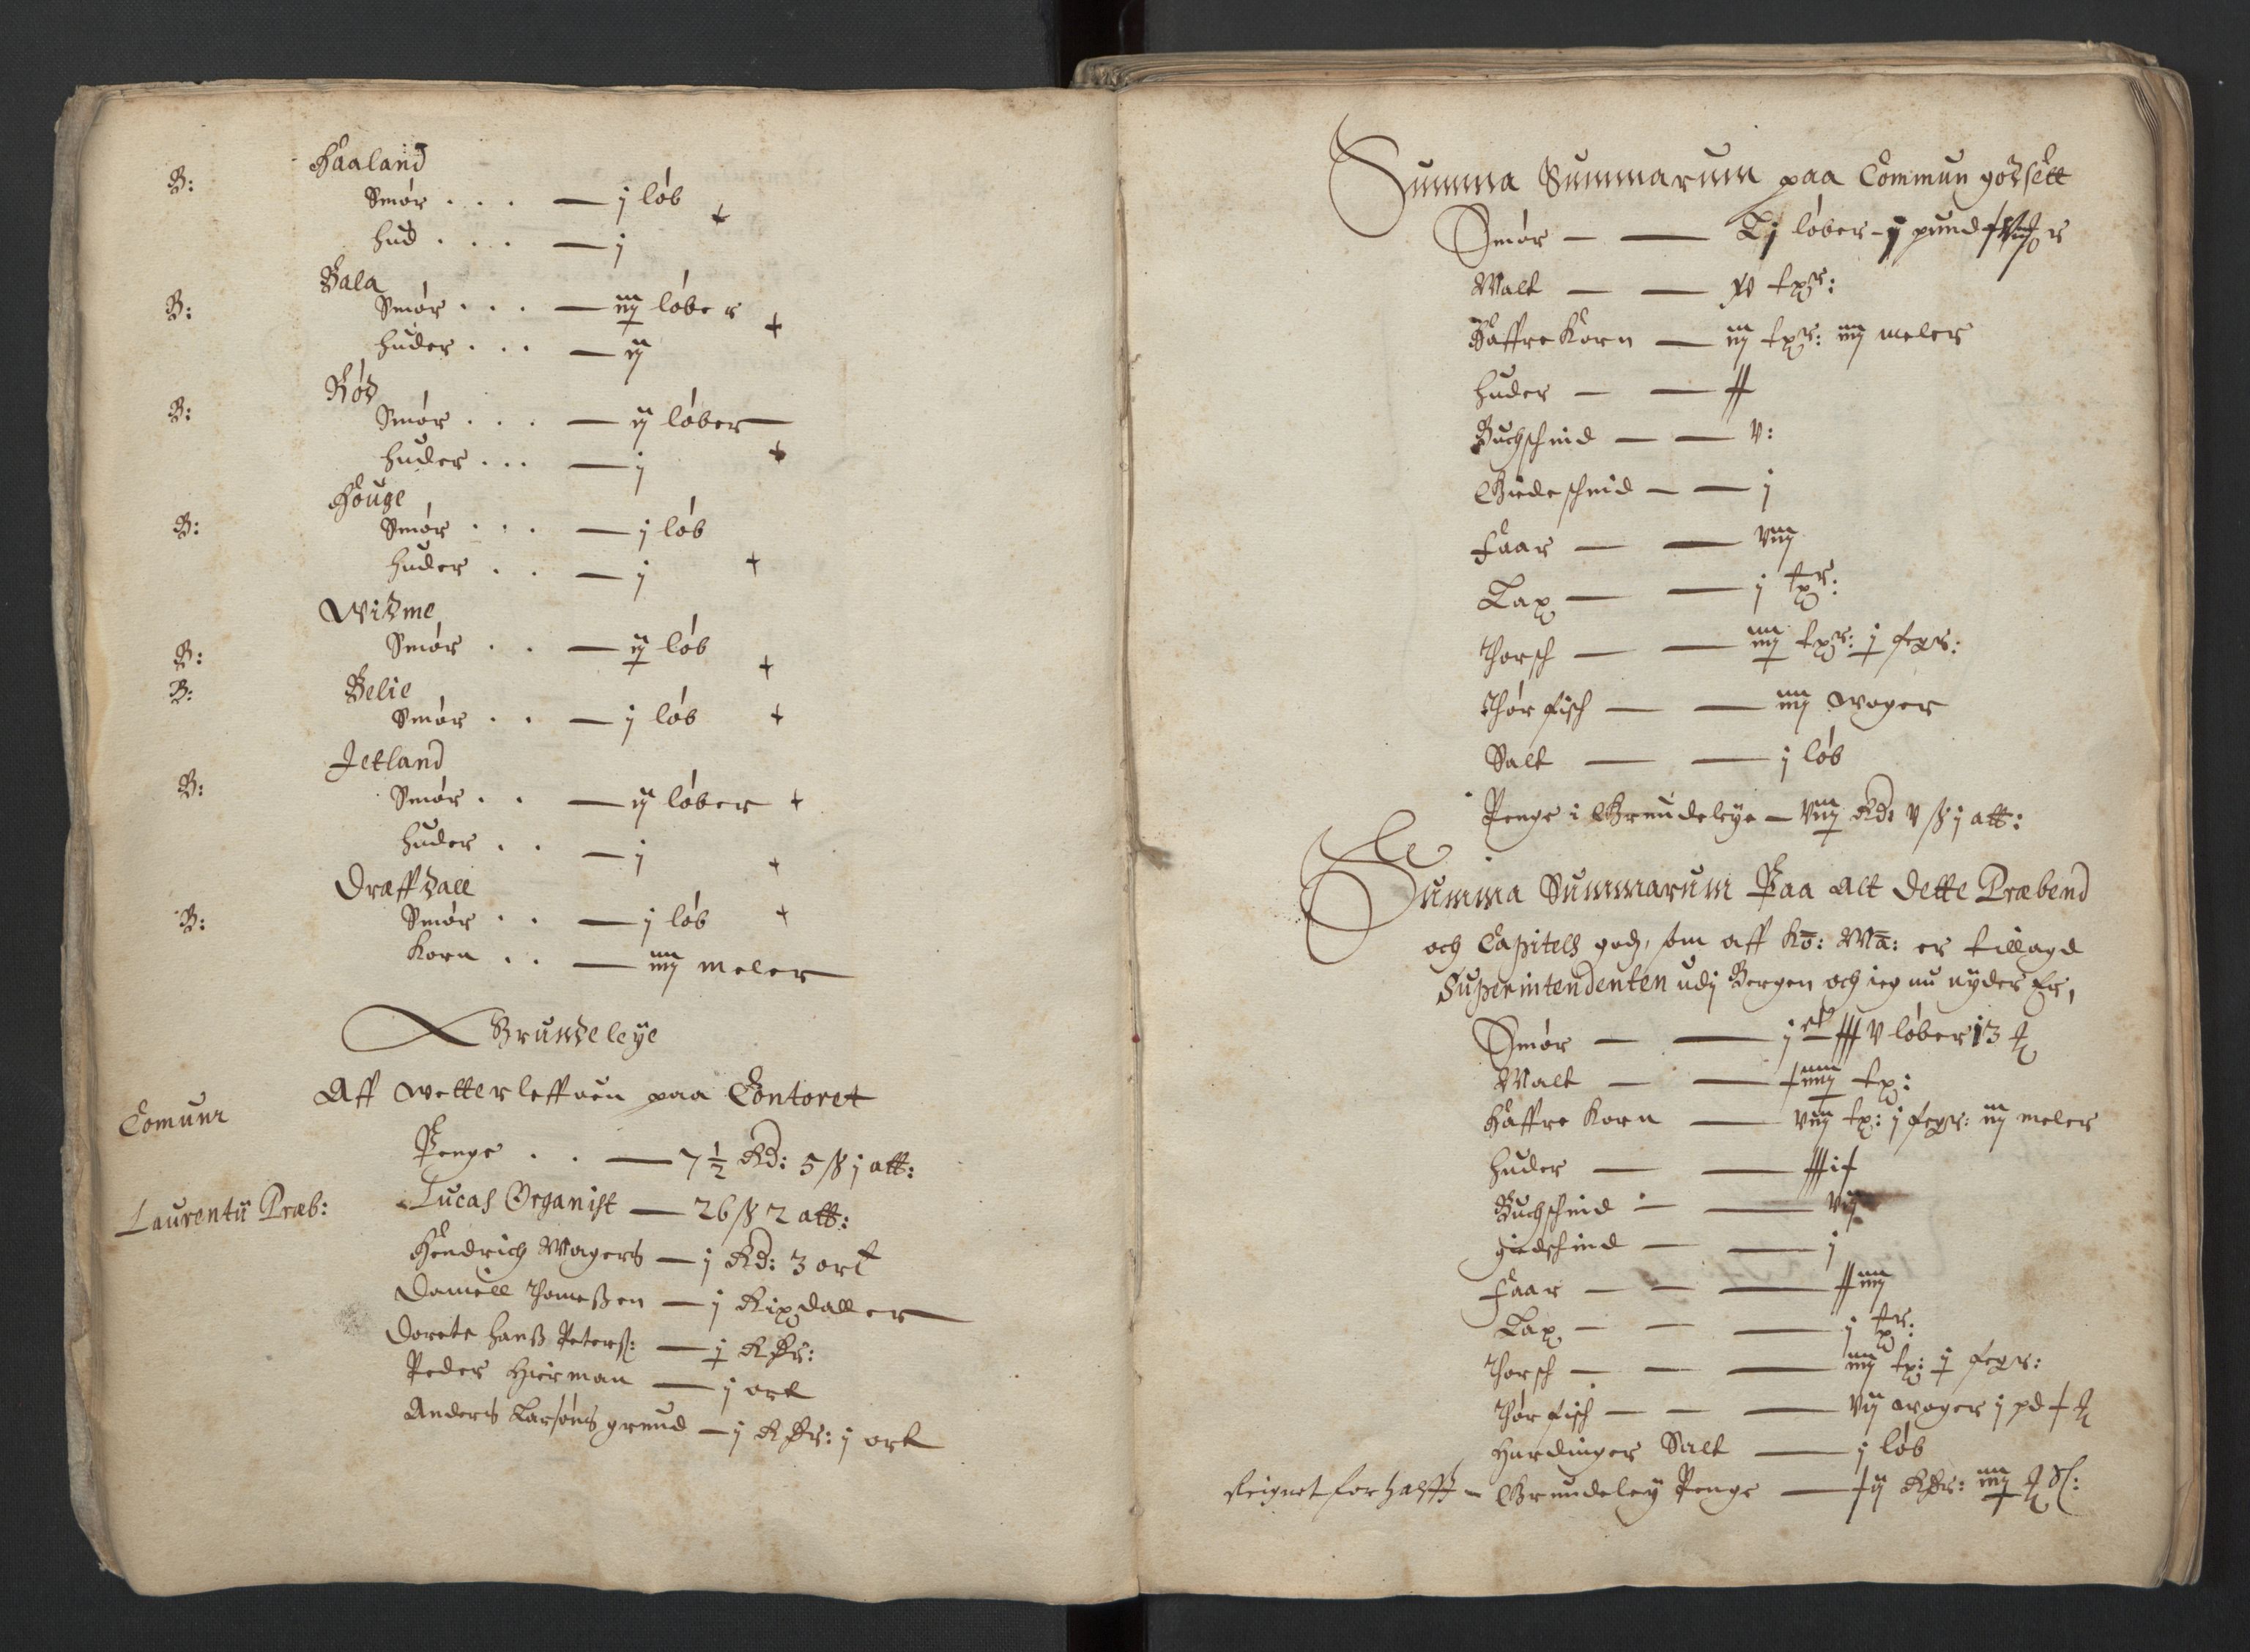 B: Haaland
Smør . . . — j løb +
Hud . . . — j
B: Bala
Smør . . . — iij løber +
Huder . . . — ij
B: Rød
Smør . . . — ij løber
Huder . . . — j +
B: Houge
Smør . . . — j løb
Huder . . — j +
B: Widme
Smør . . — ij løb +
B: Belie
Smør . . — j løb +
B: Jetland
Smør . . — ij løber +
Huder . . — j +
B: Dræffdall
Smør . . — j løb +
Korn . . — iiij meler
Grundeleÿe
Comune Aff Wetterleffuen paa Contoret
Penge . . — 7 ½ Rd: 5 ß j alb:
Laurentii Præb: Lucas Organist — 26 ß 2 alb:
Hendrich Magers — j Rd: 3 ort
Daniell Thomeßen — j Rixdaller
Dorete Hanß Peters: — j Rdr:
Peder — j ort
Anders Larsøns grund — j Rdr: j ort
Summa Summarum paa Commun godsett
Smør — — Lj løber - ij pund
Malt — — xv tpr:
Haffre Korn — iij tpr: iiij meler
Huder — —
Buchschind — — v:
Giedeschind — — j
Faar — — viij
Lax — — j tpr:
Thorsch — — iiij tpr: j
Thør fisch — — iiij woger
Salt — — j løb
Penge i Grundeleye — viij Rd: v ß j alb:
Summa Summarum Paa Alt dette Præbend
och Capitels gods, som aff Ko: Ma: er tillagd
Superintendenten udj Bergen och ieg nu nyder Er,
Smør — — v løber 13
Malt — — tp:
Haffre Korn — viij tp: j iij meler
Huder — —
Buchschind — — vij
giedschind — — j
Faar — — —
Lax — — — j tr:
Thorsch — — — iiij tp: j
Thør fisch — — — vij woger j pd
Hardinger Salt — j løb
Grundeleÿ Penge — Rdr: